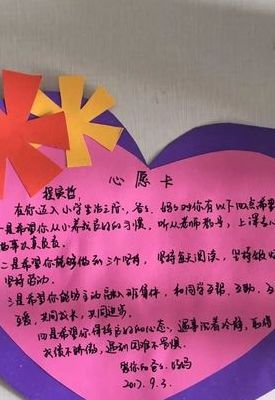 心愿卡
程奕哲:
在你迈入小学生活之际,爸爸、妈妈对你有以下四点希望
一是希望你从小养成良好的习惯,听从老师教导,上课专心
二是希望你能够做到三个坚持,坚持每天阅读,坚持锻炼
坚持劳动。
三是希望你能够主动融入班集体,和同学互帮、互助、互
互爱,共同成长,共同进步。
四是希望你保持良好的心态,遇事沉着冷静,取得
成绩不骄傲,遇到困难不畏惧。
爱你的爸爸、妈妈
2017.9.3.